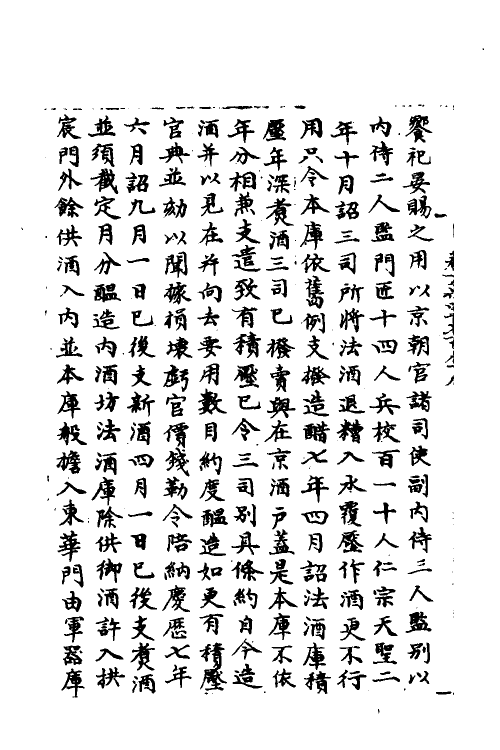 饗祀晏賜之用以京朝官諸司使副內侍三人監別以
內侍二人監門匠十四人兵校百一十人仁宗天聖二
年十月詔三司所將法酒退糟入水覆壓作酒更不行
用只令本庫依舊例支撥造醋七年四月詔法酒庫積
壓年深煑酒三司已撥賣與在京酒戶蓋是本庫不依
年分相兼支遣致有積壓已令三司別具條約自今造
酒并以見在并向去要用數目約度醞造如更有積壓
官典並劾以聞據損壞虧官價錢勒令陪納慶歷七年
六月詔九月一日已後支新酒四月一日已後支煑酒
並須截定月分醞造內酒坊法酒庫除供御酒許入拱
宸門外餘供酒入內並本庫般擔入東華門由軍器庫